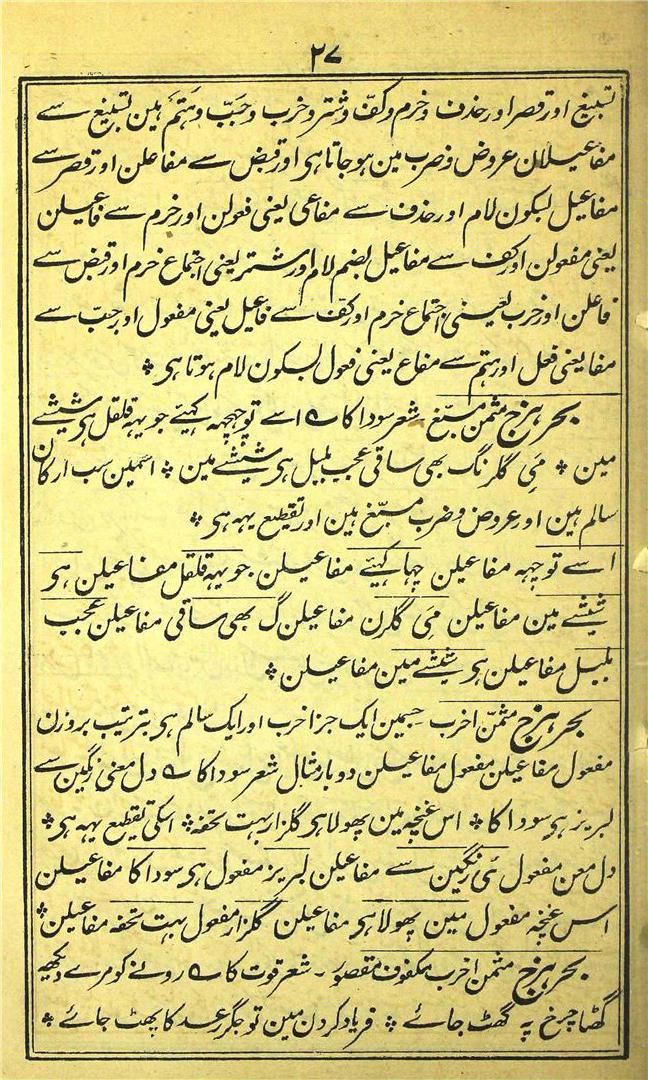 ۲۷
تسبیغ اور قصر اور حذف و خرم و کفّ و شتر و خرب و جَبّ و ہَتم ہین تسبیغ سے
مفاعیلان عروض و ضرب مین ہو جاتا ہی اور قبض سے مفاعلن اور قصر سے
مفاعیل بسکون لام اور حذف سے مفاعی یعنی فعولن اور خرم سے فاعیلن
یعنی مفعولن اور کف سے مفاعیل بضم لام اور شتر یعنی اجتماع خرم اور قبض سے
فاعلن اور خرب یعنی اجتماع خرم اور کفّ سے فاعیل یعنی مفعول اور جبّ سے
مفا یعنی فعل اور ہتم سے مفاع یعنی فعول بسکون لام ہوتا ہی ٭
بحر ہزج مثمن مسبّغ شعر سودا کا ؎ اسے تو چہچہہ کہیے جو یہہ قلقل ہی شیشے
مین ٭ مَی گلرنگ بھی ساقی عجب بلبل ہی شیشے مین ٭ اسمین سب ارکان
سالم ہین اور عروض و ضرب مسبّغ ہین اور تقطیع یہہ ہی ٭
اسے تو چہہ مفاعیلن چہا کہیے مفاعیلن جو یہہ قلقل مفاعیلن ہی
شیشے مین مفاعیلن مَی گلرن مفاعیلن گ بھی ساقی مفاعیلن عجب
بلبل مفاعیلن ہی شیشے مین مفاعیلن ٭
بحر ہزج مثمّن اخرب جسمین ایک جز اخرب اور ایک سالم ہی بترتیب بروزن
مفعول مفاعیلن مفعول مفاعیلن دوبار مثال شعر سودا کا ؎ دل معنی رنگین سے
لبریز ہی سودا کا ٭ اس غنچہ مین پھولا ہی گلزار بہت تحفہ ٭ اسکی تقطیع یہہ ہی ٭
دل معن مفعول ئی رنگین سے مفاعیلن لبریز مفعول ہی سودا کا مفاعیلن
اس غنچہ مفعول مین پھولا ہی مفاعیلن گلزار مفعول بہت تحفہ مفاعیلن ٭
بحر ہزج مثمن اخرب مکفوف مقصور ۔ شعر قوت کا ؎ رونے کو مرے دیکھیہ
گھٹا چرخ پہ گھٹ جائے ٭ فریاد کردن مین تو جگر رعد کا پھٹ جائے ٭